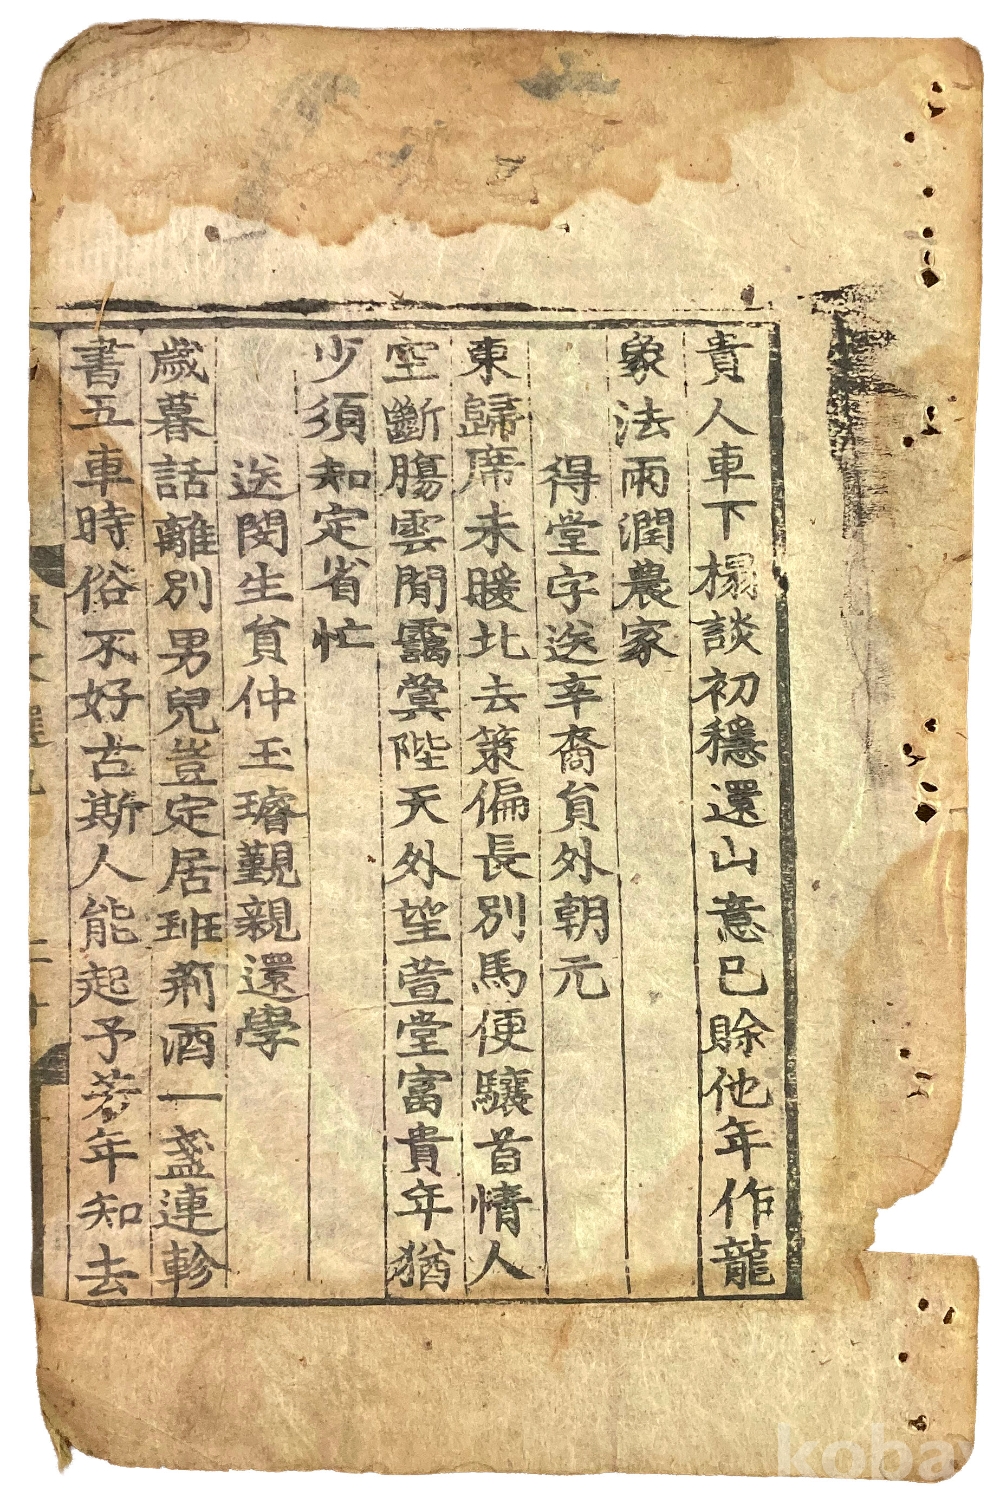 貴人車下榻談初穩還山意已賖他年作龍
象法雨潤農家
得堂字送辛裔貟外朝元
東歸席未暖北去策偏長別馬便驤首情人
空斷膓雲閒靄蓂陛天外望萱堂富貴年猶
少須知定省忙
送閔生貟仲玉璿覲親還學
歲暮話離別男兒豈定居班荊酒一盞連軫
書五車時俗不好古斯人能起予芳年知去
文選
koba